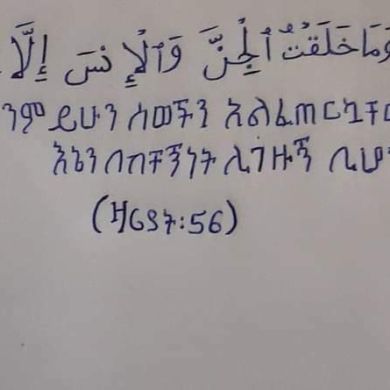 وَمَا خَلَقْتُ ٱلْجِنَّ وَٱلْإِنسَ إِلَّا
ንም ይሁን ሰወችን አልፈጠርኳቸ
እኔን በብቸኝነት ሊገዙኝ ቢሆ
(ዛሪያት:56)